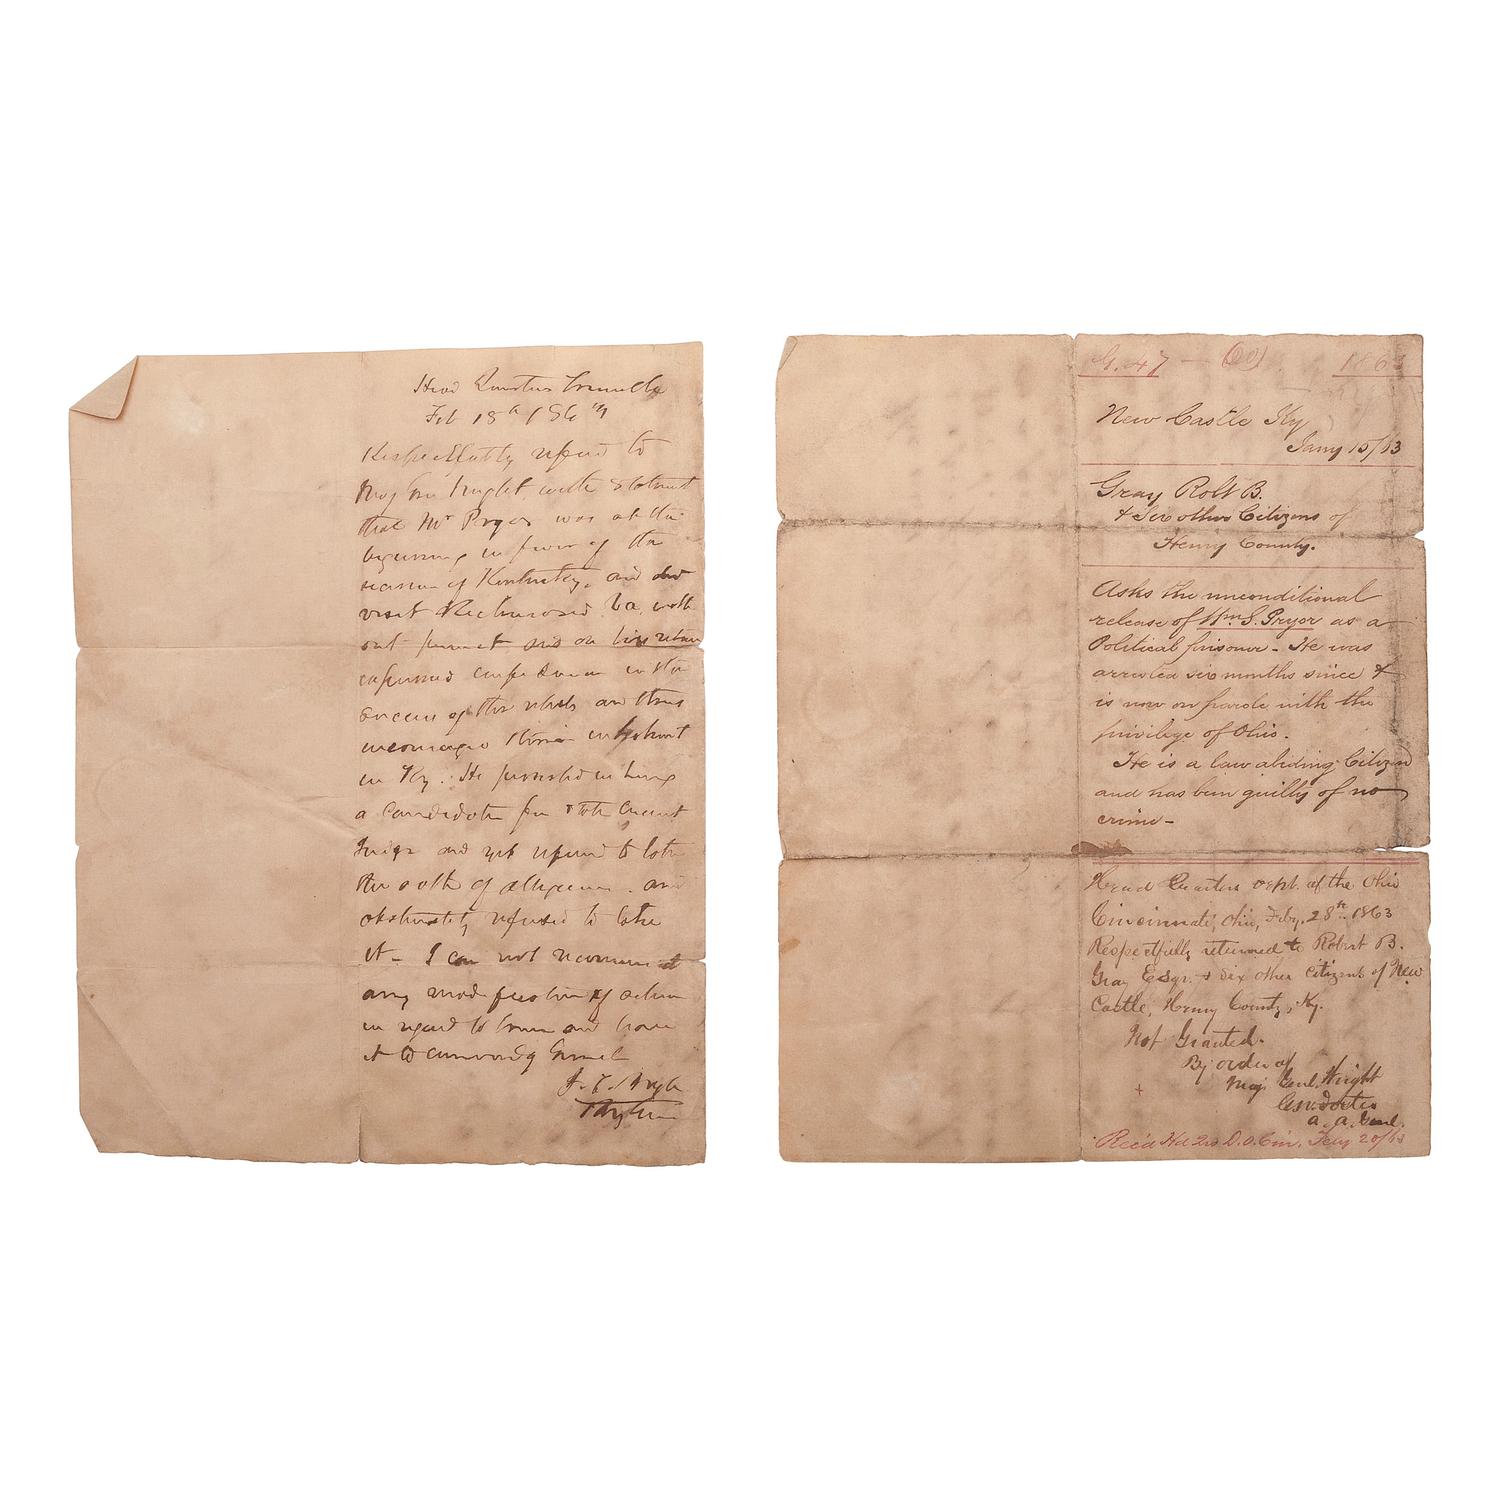 Head Quarters Louisville
Feb 18th 1863
Respectfully referred to
Maj Gen Wright, with statement
that Mr Pryor was at the
beginning in favor of the
secession of Kentucky, and did
visit Richmond Va. with
out permit and on his return
expressed confidence in the
success of the rebels and thus
encouraged
in Ky. He persisted in being
a candidate for State Circuit
Judge and yet refused to take
the oath of allegiance. and
obstinately refused to take
it - I can not recommend
any modification of action
in regard to him and leave
it to commanding General
G. 47 — (60) 1863
New Castle Ky
Jany 15/63
Gray Robt B.
& Six other Citizens of
Henry County.
Asks the unconditional
release of Wm. S. Pryor as a
Political prisoner - He was
arrested six months since &
is now on parole with the
privilege of Ohio.
He is a law abiding Citizen
and has been guilty of no
crime -
Head Quarters Dept. of the Ohio
Cincinnati, Ohio, Feby. 28th 1863
Respectfully returned to Robert B.
Gray Esqr. & six other citizens of New
Castle, Henry County, Ky.
Not Granted.
By order of
Maj Genl. Wright
a. a. Genl.
Rec'd Hd Qrs D. O. Cin. Feby 20/63